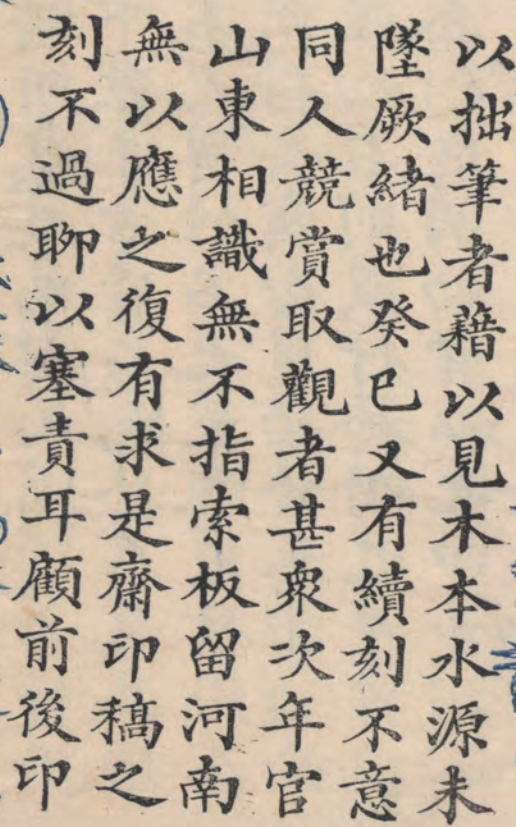 以拙筆者藉以見木本水源未
墜厥緒也癸巳又有續刻不意
同人競賞取觀者甚衆次年官
山東相識無不指索板留河南
無以應之復有求是齋印稿之
刻不過聊以塞責耳顧前後印